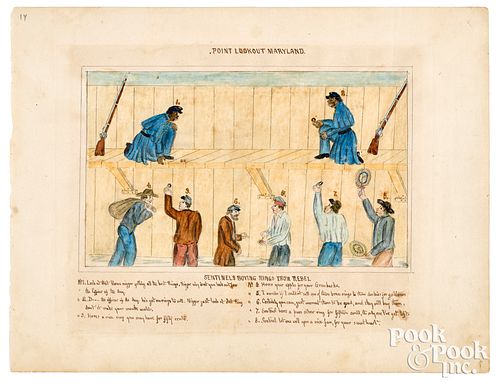 14
.POINT LOOKOUT MARYLAND.
SENTINELS BUYING RINGS FROM REBEL
No 1. Look at that nigger getting all the best things, Nigger why dont you look out for
the Officer of the day.
2. the officer of the day has got nothing to sell. Nigger just look at that Ring
dont it make your mouth water.
3. Heres a nice ring you may have for fifty cents.
your apple for your Greenbacks.
I wonder if I could sell one of these bone rings to them
6. Certainly you can, just
7. Sentinel heres a nice silver ring for fifteen cents, the only one I've got.
8. Sentinel let me sell you a nice fan, for your sweet heart.
POOK &
POOK Inc.